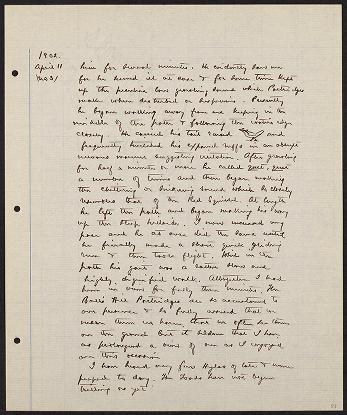 1902.
April 11
(No 3)
him for several minutes. He evidently saw me
for he seemed ill at ease & for some time kept
up the peculiar low growling sound which Partridges
make when disturbed or suspicious. Presently
he began walking away from me keeping in the
middle of the path & following the
closely. He carried his tail raised and
frequently twitched his expanded ruffs in an abrupt
nervous manner suggesting irritation. After growling
for half a minute or more he called quit, quit
a number of times and then began making
the chattering or snickering sound which so closely
resembles that of the Red Squirrel. At length
he left the path and began making his way
up the steep hillside. I now moved my
pose and he at once saw the same
he finally made a short quick gliding
run & then took flight. While in the
path his gait was a rather slow and
highly dignified walk. Altogether I had
him in view for fully three minutes. The
Ball's Hill Partridges are so accustomed to
our presence & so firmly assured that we
mean them no harm that we often see them
on the ground but it is seldom that I have
as prolonged a view of one as I enjoyed
on this occasion.
I have heard very few Hylas of late & none
to day. The Toads have not begun
trilling as yet.